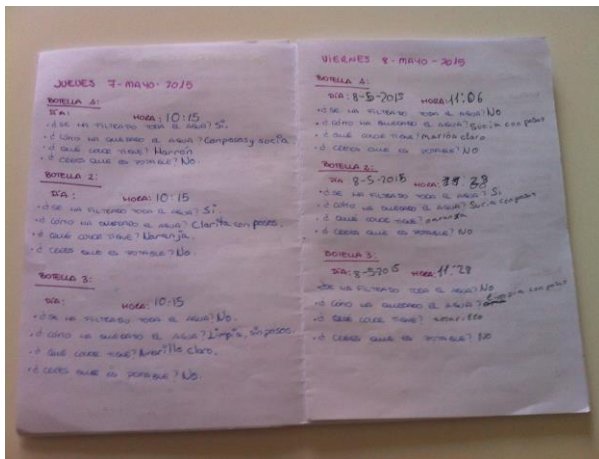 JUEVES 7-MAYO-2015
BOTELLA 1:
DÍA: HORA: 10:15
·¿SE HA FILTRADO TODA EL AGUA? Sí.
·¿CÓMO HA QUEDADO EL AGUA? Con posos y sucia
·¿QUÉ COLOR TIENE? Marrón
·¿CREES QUE ES POTABLE? No.
BOTELLA 2:
DÍA: HORA: 10:15
·¿SE HA FILTRADO TODA EL AGUA? Sí.
·¿CÓMO HA QUEDADO EL AGUA? Clarita con posos.
·¿QUÉ COLOR TIENE? Naranja.
·¿CREES QUE ES POTABLE? No.
BOTELLA 3:
DÍA: HORA: 10:15
·¿SE HA FILTRADO TODA EL AGUA? No.
·¿CÓMO HA QUEDADO EL AGUA? Limpia, sin posos.
·¿QUÉ COLOR TIENE? Amarillo claro.
·¿CREES QUE ES POTABLE? No.
VIERNES 8-MAYO-2015
BOTELLA 1:
DÍA: 8-5-2015 HORA: 11:06
·¿SE HA FILTRADO TODA EL AGUA? No
·¿CÓMO HA QUEDADO EL AGUA? Sucia con posos
·¿QUÉ COLOR TIENE? marrón claro
·¿CREES QUE ES POTABLE? NO
BOTELLA 2:
DÍA 8-5-2015 HORA: 28
·¿SE HA FILTRADO TODA EL AGUA? Si
·¿CÓMO HA QUEDADO EL AGUA? Sucia con posos
·¿QUÉ COLOR TIENE? naranja
·¿CREES QUE ES POTABLE? NO
BOTELLA 3:
DÍA: 8-5-2015 HORA: 11:28
·¿SE HA FILTRADO TODA EL AGUA? No
·¿CÓMO HA QUEDADO EL AGUA? limpia con posos
·¿QUÉ COLOR TIENE?
·¿CREES QUE ES POTABLE? NO